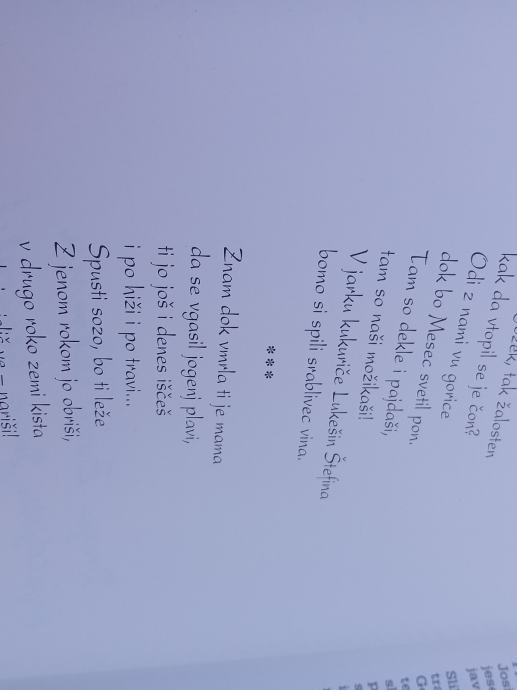 kak da vtopil se je čon?
Odi z nami vu gorice
dok bo Mesec svetil pon.
Tam so dekle i pajdaši,
tam so naši možikaši!
V jarku kukuriče Lukešin Štefina
bomo si spili srablivec vina.
***
Znam dok vmrla ti je mama
da se vgasil jogenj plavi,
ti jo još i denes iščeš
i po hiži i po travi...
Spusti sozo, bo ti leže
Z jenom rokom jo obriši,
v drugo roko zemi kista
nariši!